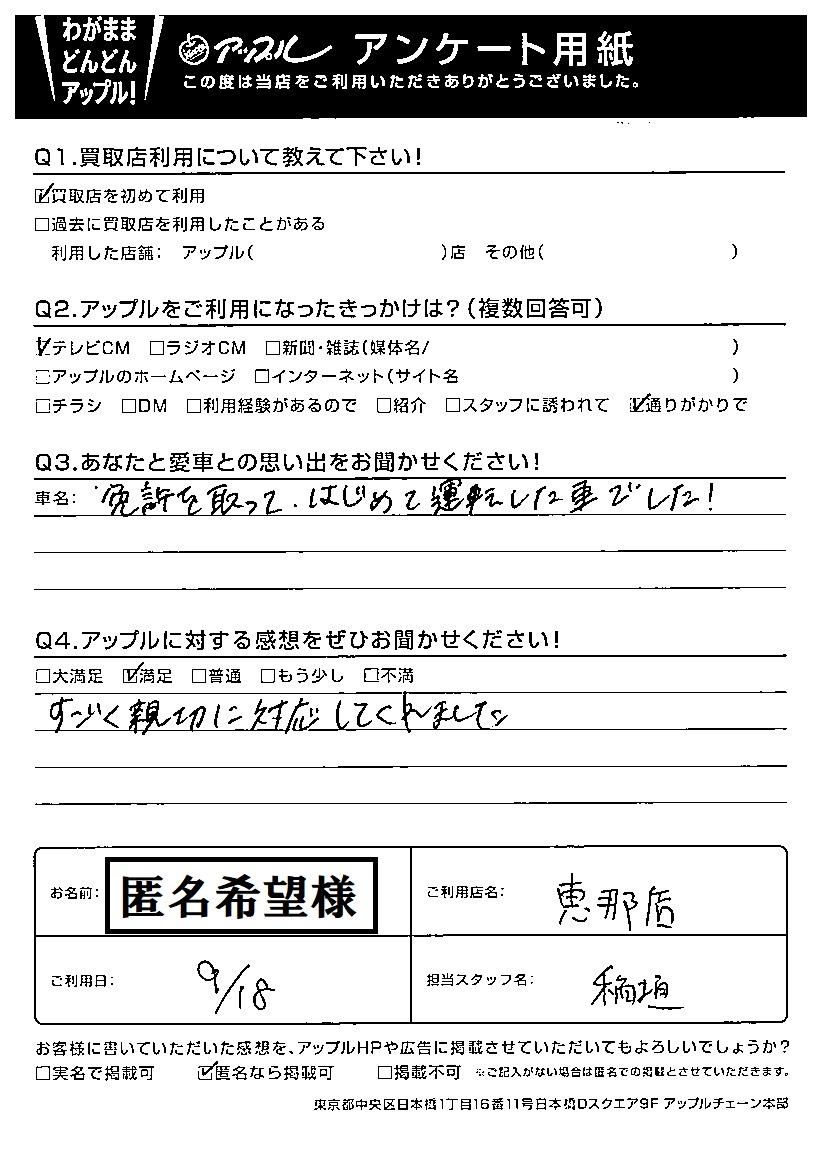 わがまま
どんどん
アップル!
アップル アンケート用紙
この度は当店をご利用いただきありがとうございました。
Q1.買取店利用について教えて下さい!
☑買取店を初めて利用
□過去に買取店を利用したことがある
利用した店舗: アップル( )店 その他( )
Q2.アップルをご利用になったきっかけは?(複数回答可)
☑テレビCM □ラジオCM □新聞・雑誌(媒体名/ )
□アップルのホームページ □インターネット(サイト名 )
□チラシ □DM □利用経験があるので □紹介 □スタッフに誘われて ☑通りがかりで
Q3.あなたと愛車との思い出をお聞かせください!
車名: 免許を取って、はじめて運転した車でした!
Q4.アップルに対する感想をぜひお聞かせください!
□大満足 ☑満足 □普通 □もう少し □不満
すごく親切に対応してくれました
お名前: 匿名希望様
ご利用店名: 恵那店
ご利用日: 9/18
担当スタッフ名: 稲垣
お客様に書いていただいた感想を、アップルHPや広告に掲載させていただいてもよろしいでしょうか?
□実名で掲載可 ☑匿名なら掲載可 □掲載不可 ※ご記入がない場合は匿名での掲載とさせていただきます。
東京都中央区日本橋1丁目16番11号日本橋Dスクエア9F アップルチェーン本部